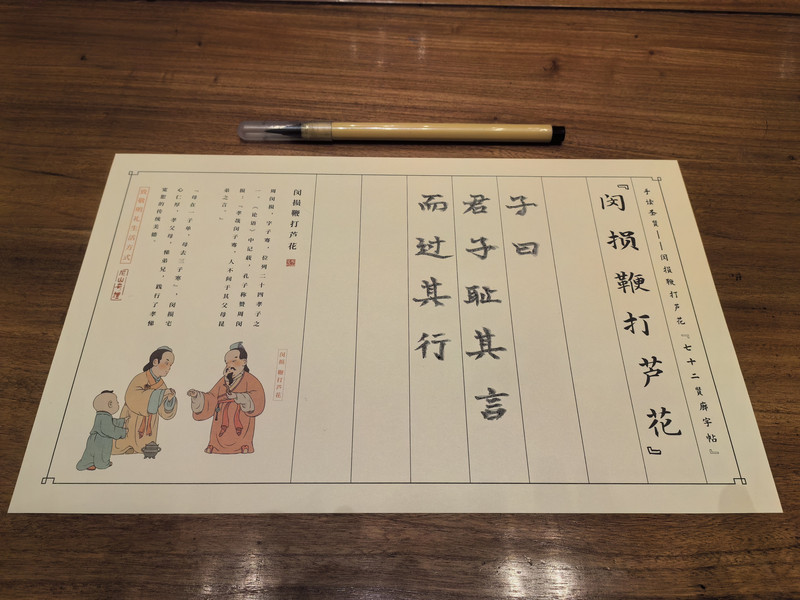 手读圣賢——闵损鞭打芦花『七十二賢廊字帖』
『闵损鞭打芦花』
子曰
君子耻其言
而过其行
闵损鞭打芦花
周闵损，字子骞，位列二十四孝子之
一，《论语》中记载，孔子称赞周闵
损：「孝哉闵子骞，人不间于其父母昆
弟之言。」
“母在一子单，母去三子寒”，闵损宅
心仁厚，孝父母，悌弟兄，践行了孝悌
宽恕的传统美德。
致敬明礼生活方式
闵损 鞭打芦花